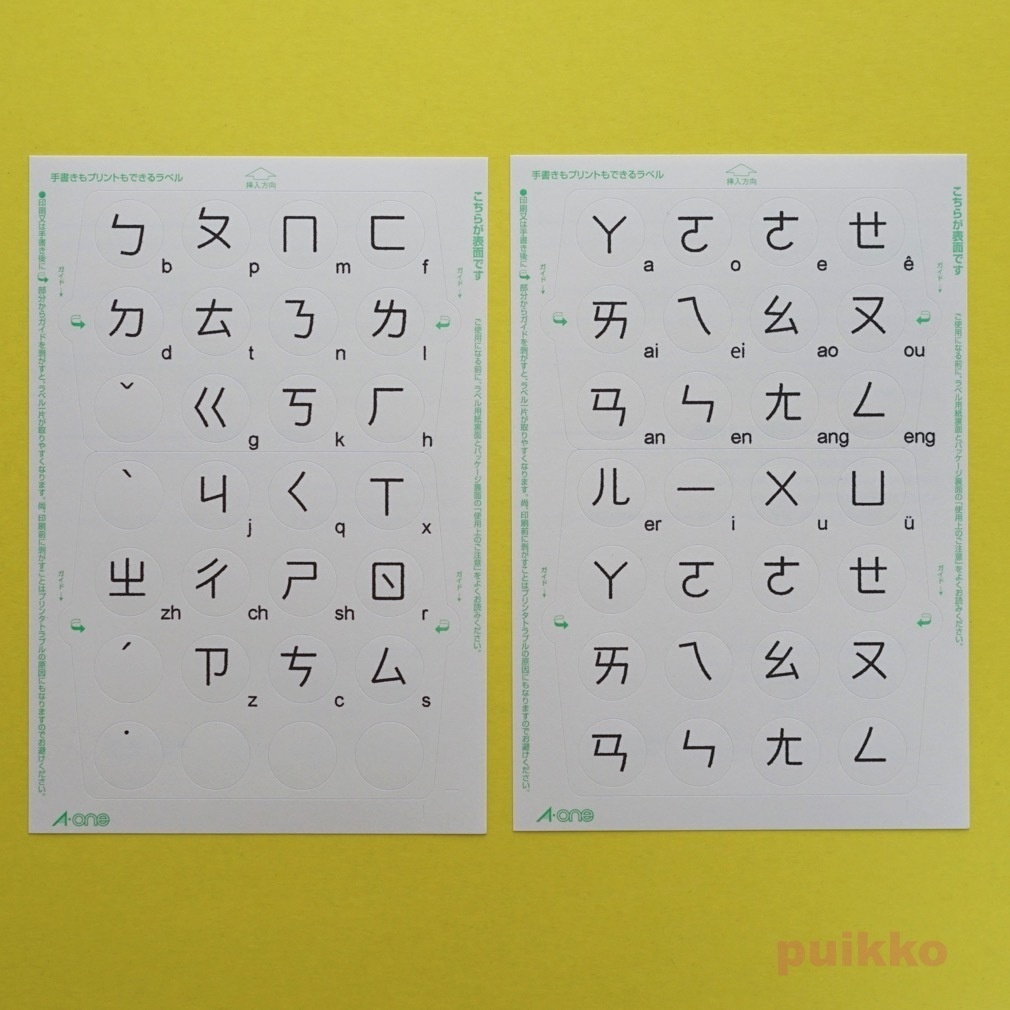 手書きもプリントもできるラベル
挿入方向
こちらが表面です
ご使用になる前に、ラベル用紙裏面とパッケージ裏面の「使用上のご注意」をよくお読みください。
●印刷又は手書き後に 部分からガイドを剥がすと、ラベル一片が取りやすくなります。尚、印刷前に剥がすことはプリンタトラブルの原因にもなりますのでお避けください。
ガイド
ガイド
ガイド
ガイド
ㄅ b ㄆ p ㄇ m ㄈ f
ㄉ d ㄊ t ㄋ n ㄌ l
ˇ ㄍ g ㄎ k ㄏ h
ˋ ㄐ j ㄑ q ㄒ x
ㄓ zh ㄔ ch ㄕ sh ㄖ r
ˊ ㄗ z ㄘ c ㄙ s
˙
A·one
手書きもプリントもできるラベル
挿入方向
こちらが表面です
ご使用になる前に、ラベル用紙裏面とパッケージ裏面の「使用上のご注意」をよくお読みください。
●印刷又は手書き後に 部分からガイドを剥がすと、ラベル一片が取りやすくなります。尚、印刷前に剥がすことはプリンタトラブルの原因にもなりますのでお避けください。
ガイド
ガイド
ガイド
ガイド
ㄚ a ㄛ o ㄜ e ㄝ ê
ㄞ ai ㄟ ei ㄠ ao ㄡ ou
ㄢ an ㄣ en ㄤ ang ㄥ eng
ㄦ er ㄧ i ㄨ u ㄩ ü
ㄚ ㄛ ㄜ ㄝ
ㄞ ㄟ ㄠ ㄡ
ㄢ ㄣ ㄤ ㄥ
A·one
puikko